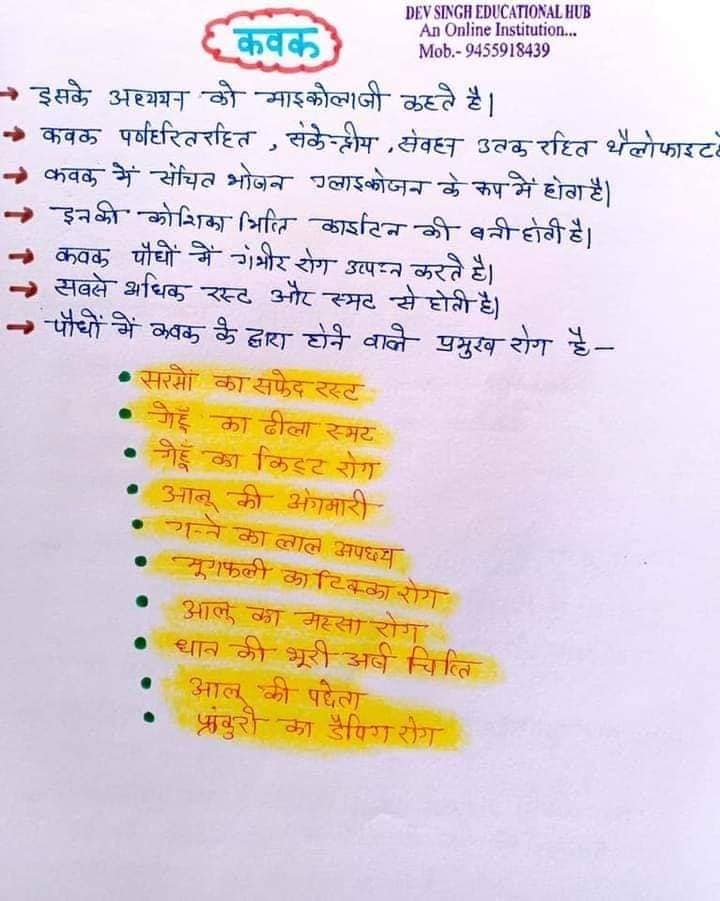 DEV SINGH EDUCATIONAL HUB
An Online Institution...
Mob.- 9455918439
कवक
→ इसके अध्ययन को माइकोलाजी कहते है।
→ कवक पर्णहरितरहित, संकेन्द्रीय, संवहन उतक रहित थैलोफाइट है
→ कवक में संचित भोजन ग्लाइकोजन के रूप में होता है।
→ इनकी कोशिका भित्ति काईटिन की बनी होती है।
→ कवक पौधों में गंभीर रोग उत्पन्न करते है।
→ सबसे अधिक रस्ट और स्मट से होती है।
→ पौधों में कवक के द्वारा होने वाले प्रमुख रोग है –
• सरसों का सफेद रस्ट
• गेहूँ का ढीला स्मट
• गेहूँ का किट्ट रोग
• आलू की अंगमारी
• गन्ने का लाल अपछय
• मूगफली का टिक्का रोग
• आलू का मस्सा रोग
• धान की भूरी अर्ण चित्ति
• आलू की पछेता
• प्रांकुरो का डैपिग रोग